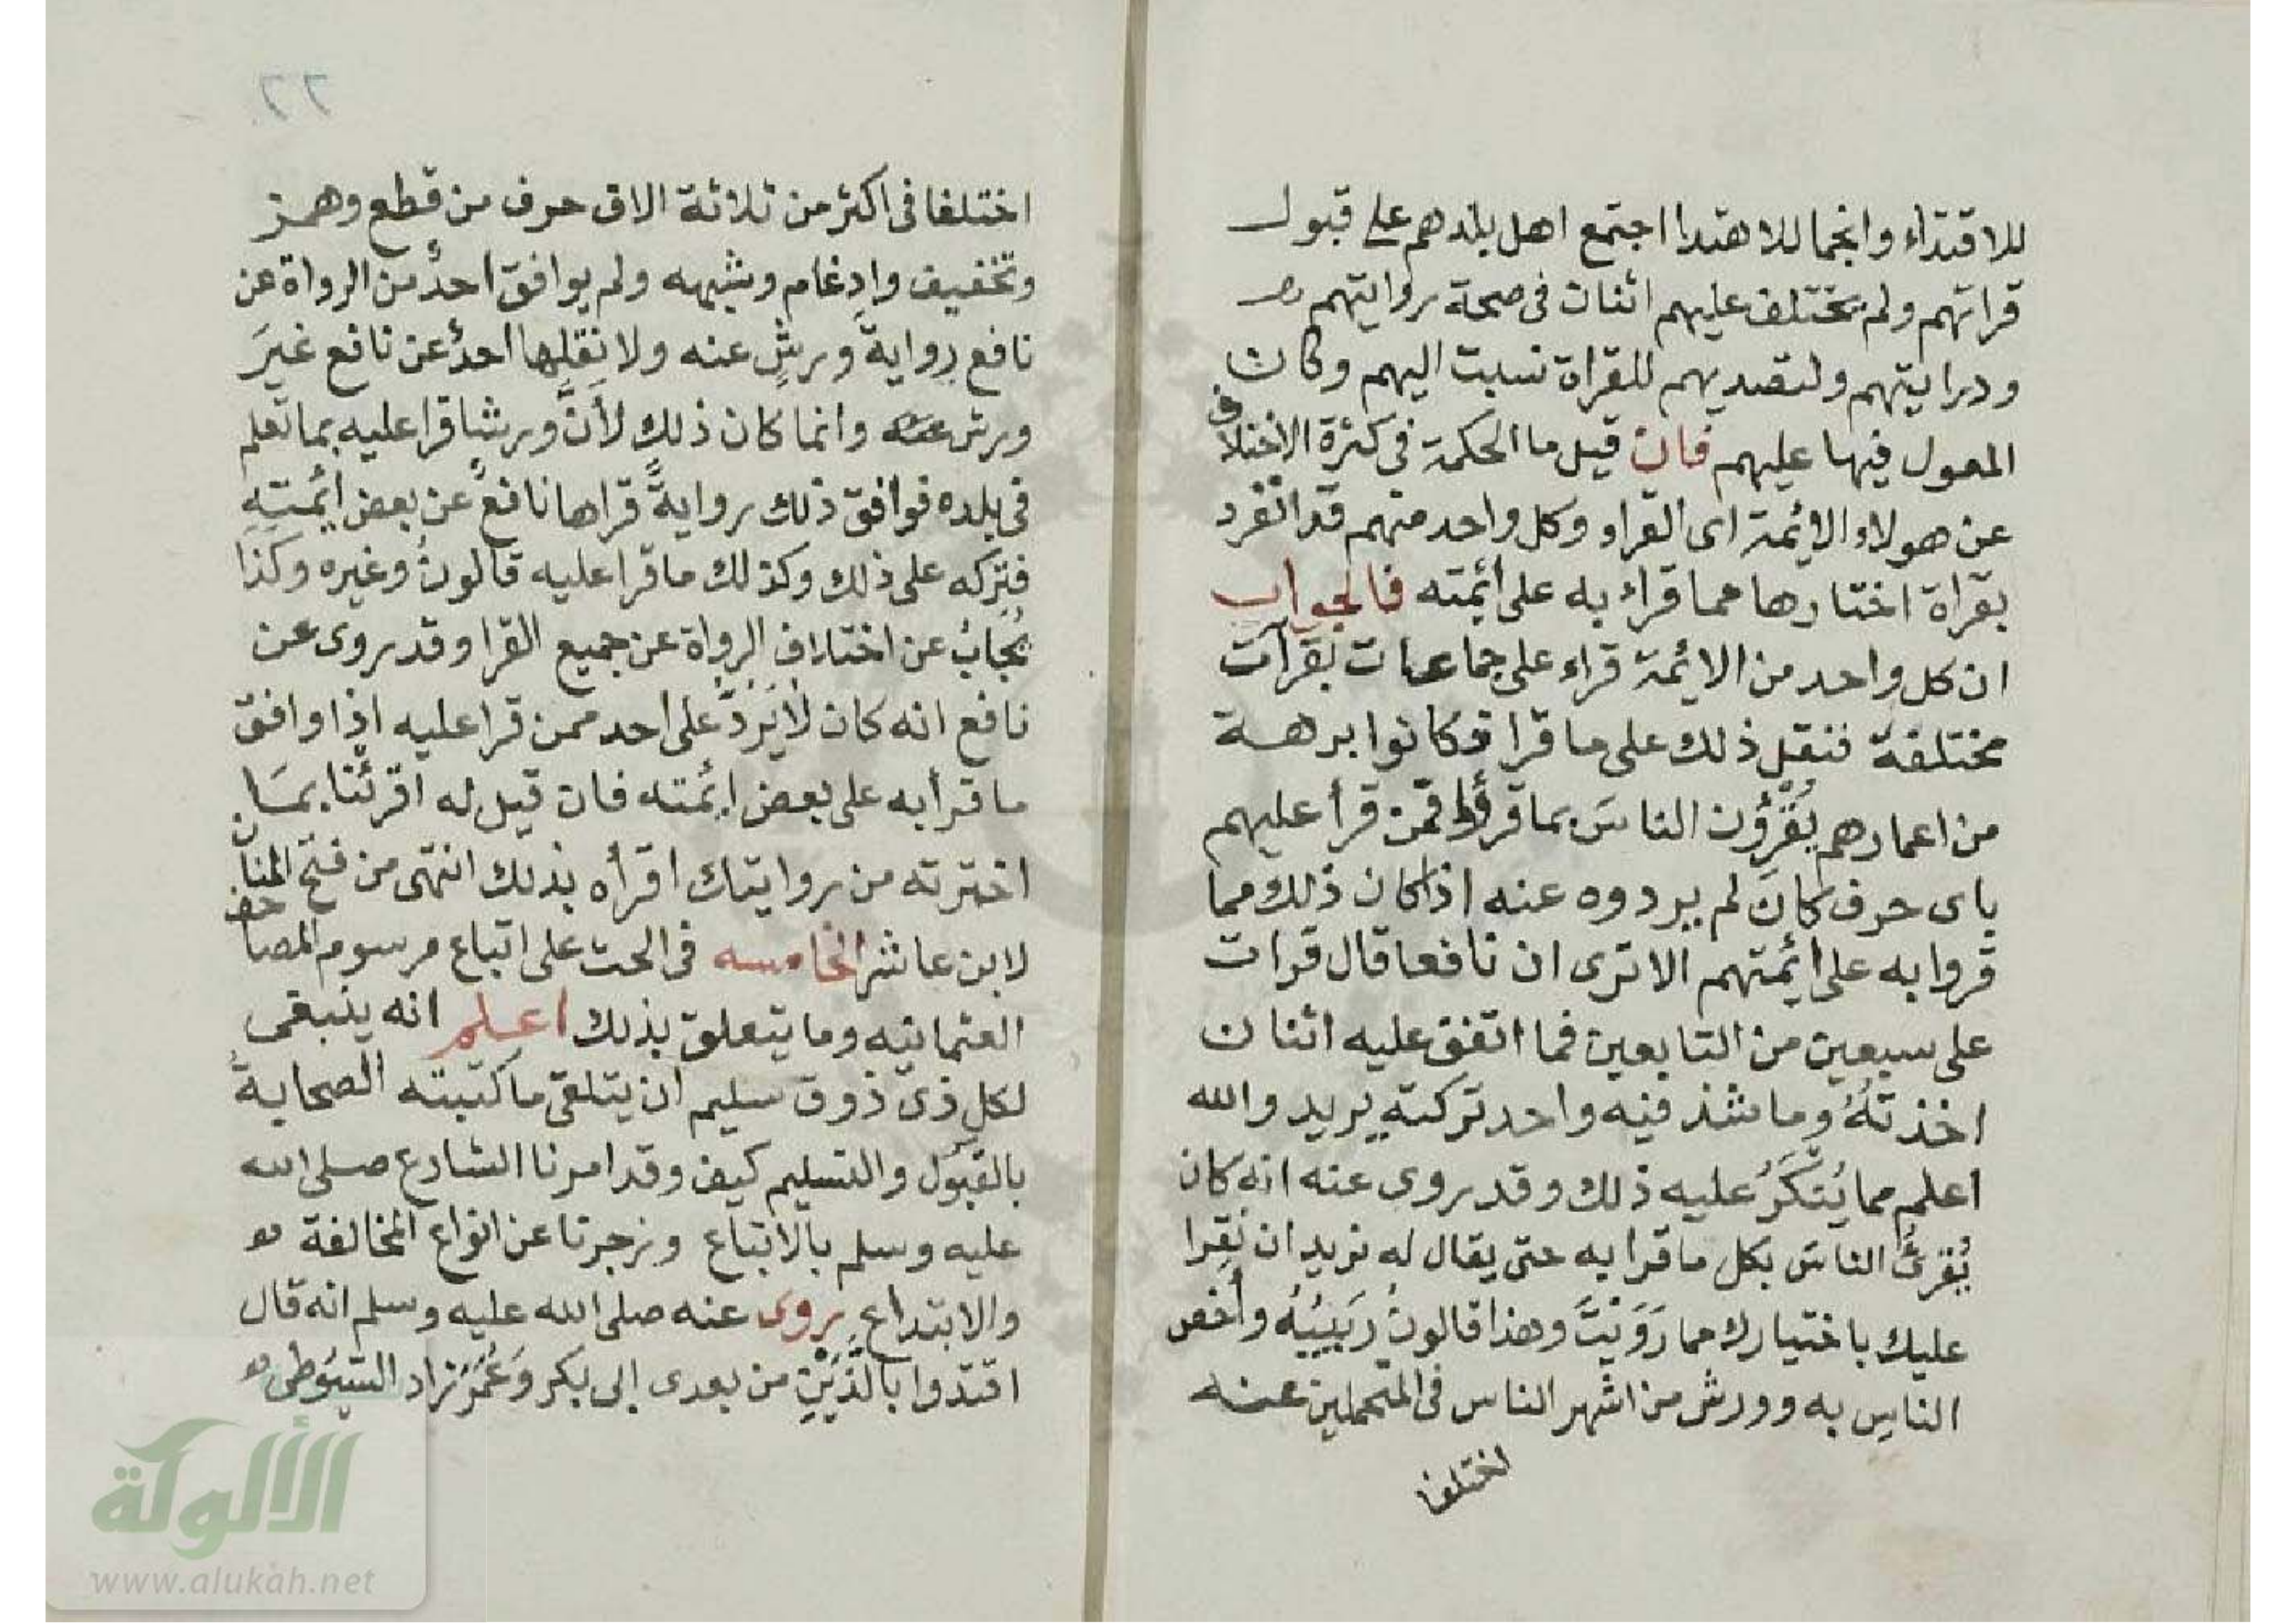 للاقتداء وانجما للاهتدا اجتمع اهل بلدهم على قبول
قراتهم ولم تختلف عليهم اثنان فى صحة روايتهم
ودرايتهم ولتصديهم للقراة نسبت اليهم وكان
المعول فيها عليهم فان قيل ما الحكمة فى كثرة الاختلاف
عن هولاء الائمة اى القراء وكل واحد منهم قد انفرد
بقراة اختارها مما قراء به على ائمته فالجواب
ان كل واحد من الائمة قراء على جماعات بقرآت
مختلفة فنقل ذلك على ما قرا فكانوا برهة
من اعمارهم يُقرؤن الناسَ بما قرؤا فمن قرأ عليهم
باى حرف كانَ لم يردوه عنه اذا كان ذلك مما
قروا به على ائمتهم الا ترى ان نافعا قال قرات
على سبعين من التابعين فما اتفق عليه اثنان
اخذتهُ وما شذ فيه واحد تركته يريد والله
اعلم مما يُنكَرُ عليه ذلك وقد روى عنه انه كان
يُقرئُ الناسَ بكل ما قرا به حتى يقال له نريد ان نقرا
عليك باختيارك مما رَوَيْتَ وهذا قالونُ رَبَيْبُهُ وأخص
الناس به وورش من اشهر الناس فى المتحملين عنه
اختلفا
٢٢
اختلفا فى اكثر من ثلاثة الاف حرف من قطع وهمز
وتخفيف وادغام وشبهه ولم يوافق احدٌ من الرواة عن
نافع رواية ورشٍ عنه ولا نقلها احدٌ عن نافع غيرَ
ورش عنه وانما كان ذلك لأنَّ ورشا قرا عليه بما تعلم
فى بلده فوافق ذلك روايةً قراها نافعٌ عن بعض ائمتِهِ
فتركه على ذلك وكذلك ما قرا عليه قالونُ وغيره وكذا
يُجابُ عن اختلاف الرواة عن جميع القرا وقد روى عن
نافع انه كان لا يَرُدُّ على احد ممن قرا عليه اذا وافق
ما قرأ به على بعض ائمته فان قيل له اقرئنا بمَا
اخترته من روايتك اقرأه بذلك انتهى من فتح المنان
لابن عاشر الخامسه فى الحث على اتباع مرسوم المصاحف
العثمانيه وما يتعلق بذلك اعلم انه ينبغى
لكل ذى ذوق سليم ان يتلقى ما كتبته الصحابةُ
بالقبُول والتسليم كيف وقد امرنا الشارع صلى الله
عليه وسلم بالاتباع وزجرنا عن انواع المخالفة
والابتداع روى عنه صلى الله عليه وسلم انه قال
اقتدوا بالَّذَيْنِ من بعدى ابى بكر وَعُمَرَ زاد السيوطى
الألوكة
www.alukah.net